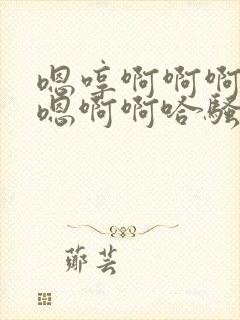 嗯哼啊啊啊
嗯啊啊哈骚
鄢芸